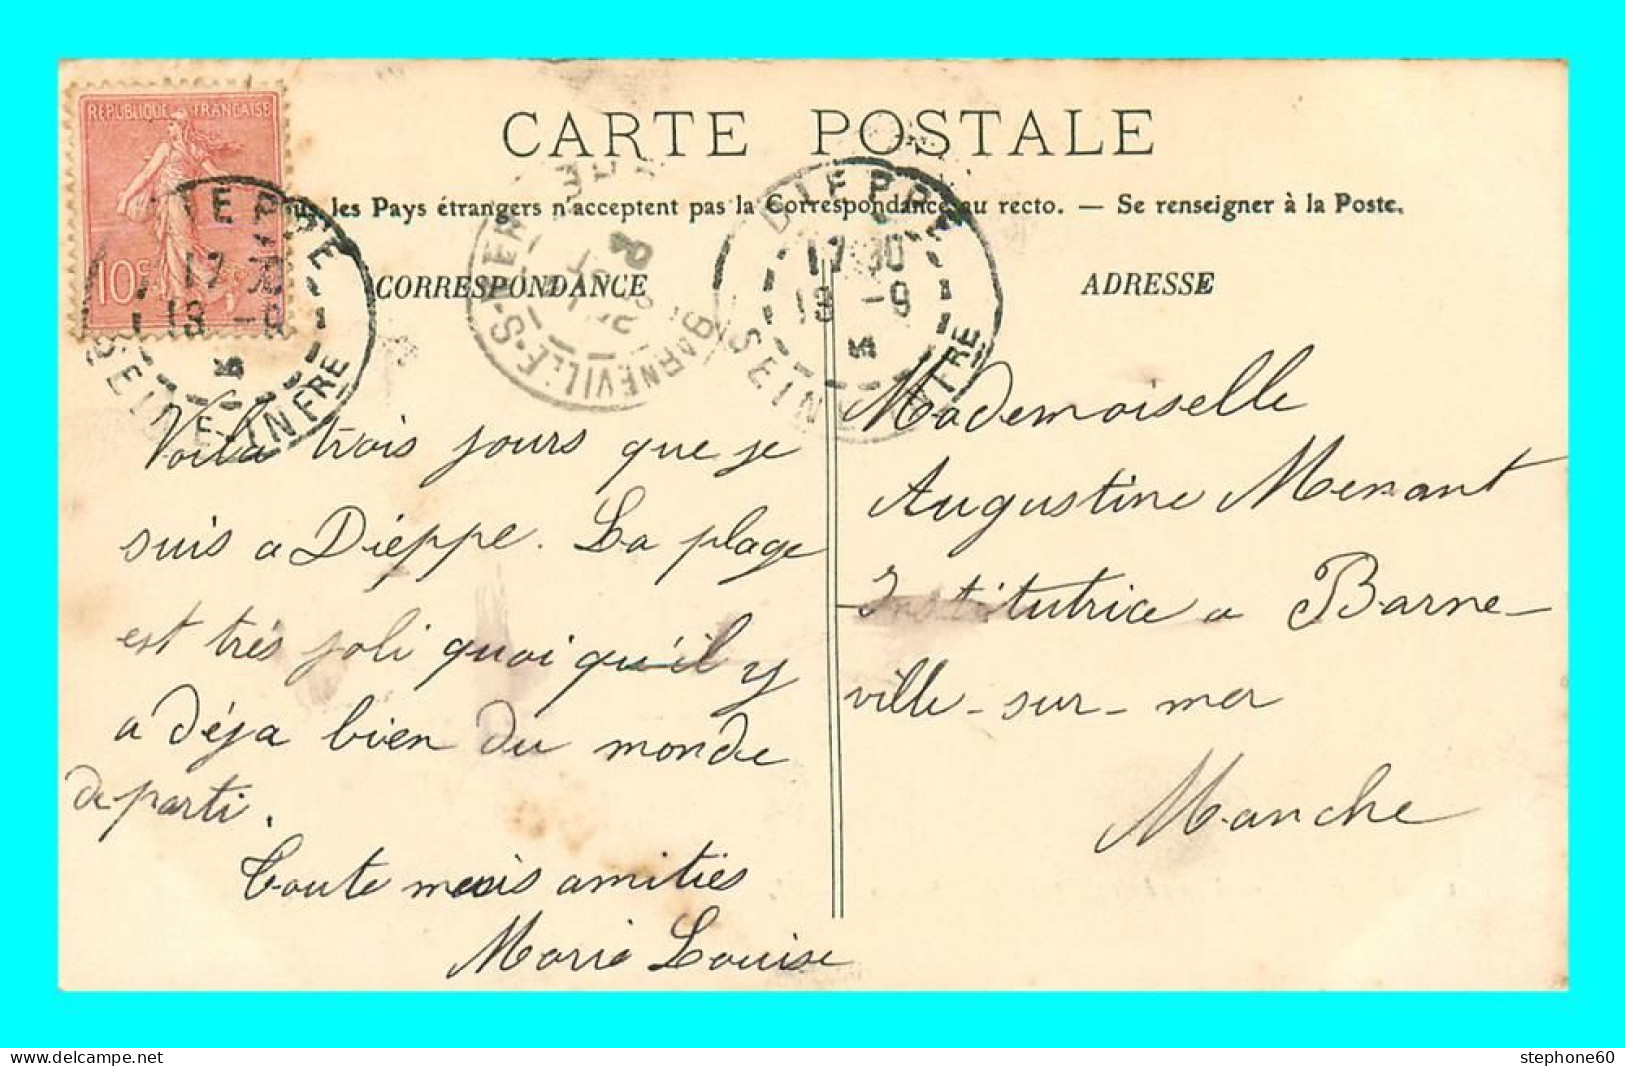 REPUBLIQUE FRANÇAISE
10c
CARTE POSTALE
les Pays étrangers n'acceptent pas la Correspondance au recto. — Se renseigner à la Poste.
CORRESPONDANCE
ADRESSE
DIEPPE
17 30
13 -9
SEINE-INFRE
BARNEVILLE-S-MER
DIEPPE
17 30
13 -9
SEINE INFRE
Voila trois jours que je
suis a Dieppe. La plage
est très joli quoi qu'il y
a déja bien du monde
de parti.
Toute mes amitiés
Marie Louise
Mademoiselle
Augustine Menant
Institutrice a Barne-
ville-sur-mer
Manche
www.delcampe.net
stephone60